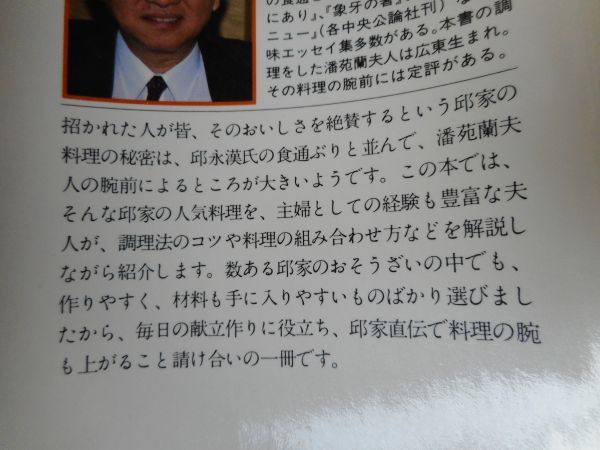 の食通
にあり』、『象牙の箸』、
ニュー』(各中央公論社刊)な
味エッセイ集多数がある。本書の調
理をした潘苑蘭夫人は広東生まれ。
その料理の腕前には定評がある。
招かれた人が皆、そのおいしさを絶賛するという邱家の
料理の秘密は、邱永漢氏の食通ぶりと並んで、潘苑蘭夫
人の腕前によるところが大きいようです。この本では、
そんな邱家の人気料理を、主婦としての経験も豊富な夫
人が、調理法のコツや料理の組み合わせ方などを解説し
ながら紹介します。数ある邱家のおそうざいの中でも、
作りやすく、材料も手に入りやすいものばかり選びまし
たから、毎日の献立作りに役立ち、邱家直伝で料理の腕
も上がること請け合いの一冊です。